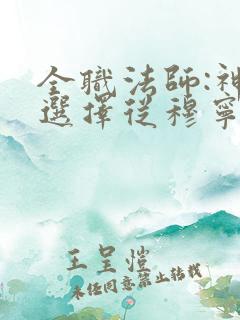 全職法師:神
選擇從穆寧
王呈愷
同意禁止